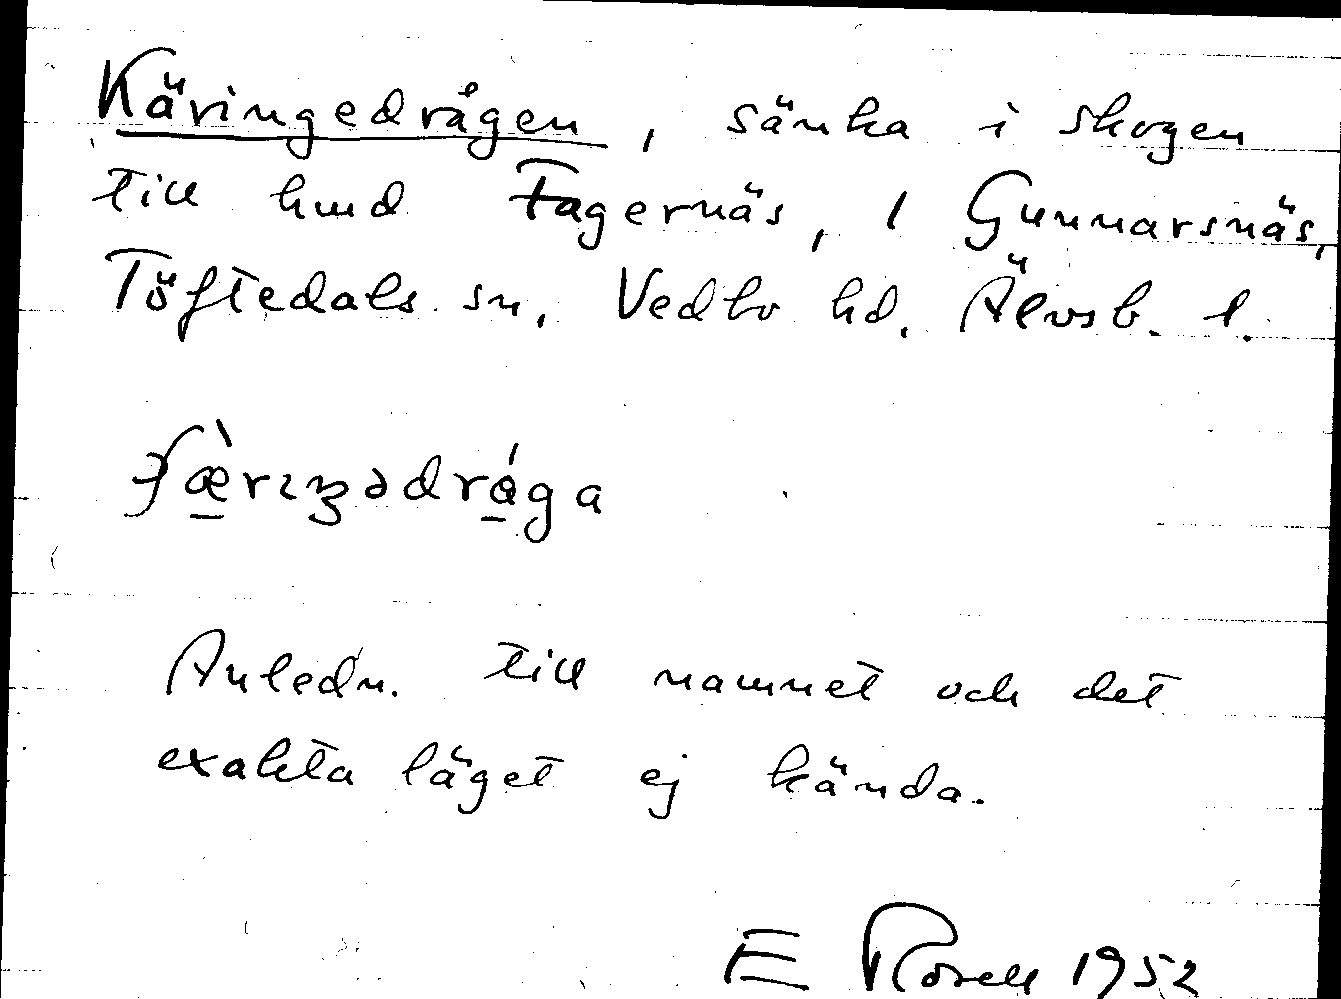 Käringedrågen, sänka i skogen
till hmd Fagernäs, 1 Gunnarsnäs,
Töftedals sn, Vedbo hd. Älvsb. l.
Anledn. till namnet och det
exakta läget ej kända.
E Rosell 1952